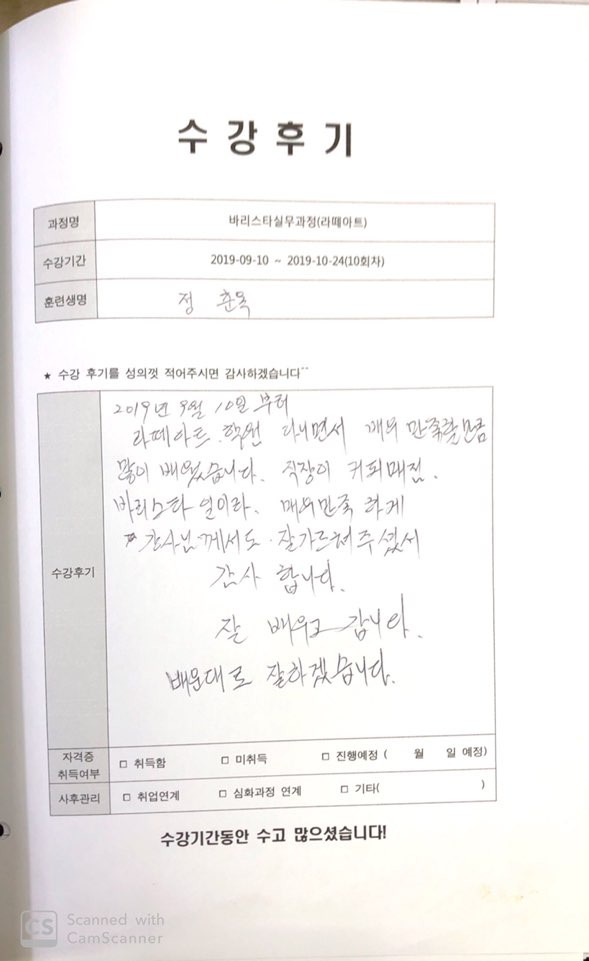 수 강 후 기
과정명 바리스타실무과정(라떼아트)
수강기간 2019-09-10 ~ 2019-10-24(10회차)
훈련생명 정 춘옥
★ 수강 후기를 성의껏 적어주시면 감사하겠습니다^^
2019년 9월 10일 부터
라떼아트 학원 다니면서 매우 만족할만큼
많이 배웠습니다. 직장이 커피매점.
바리스타 일이라. 매우만족 하게
강사님께서도 잘가르쳐주셨서
감사 합니다.
수강후기
잘 배우고 갑니다.
배운대로 잘하겠습니다.
자격증 취득여부 □ 취득함 □ 미취득 □ 진행예정 ( 월 일 예정)
사후관리 □ 취업연계 □ 심화과정 연계 □ 기타( )
수강기간동안 수고 많으셨습니다!
CS Scanned with
CamScanner